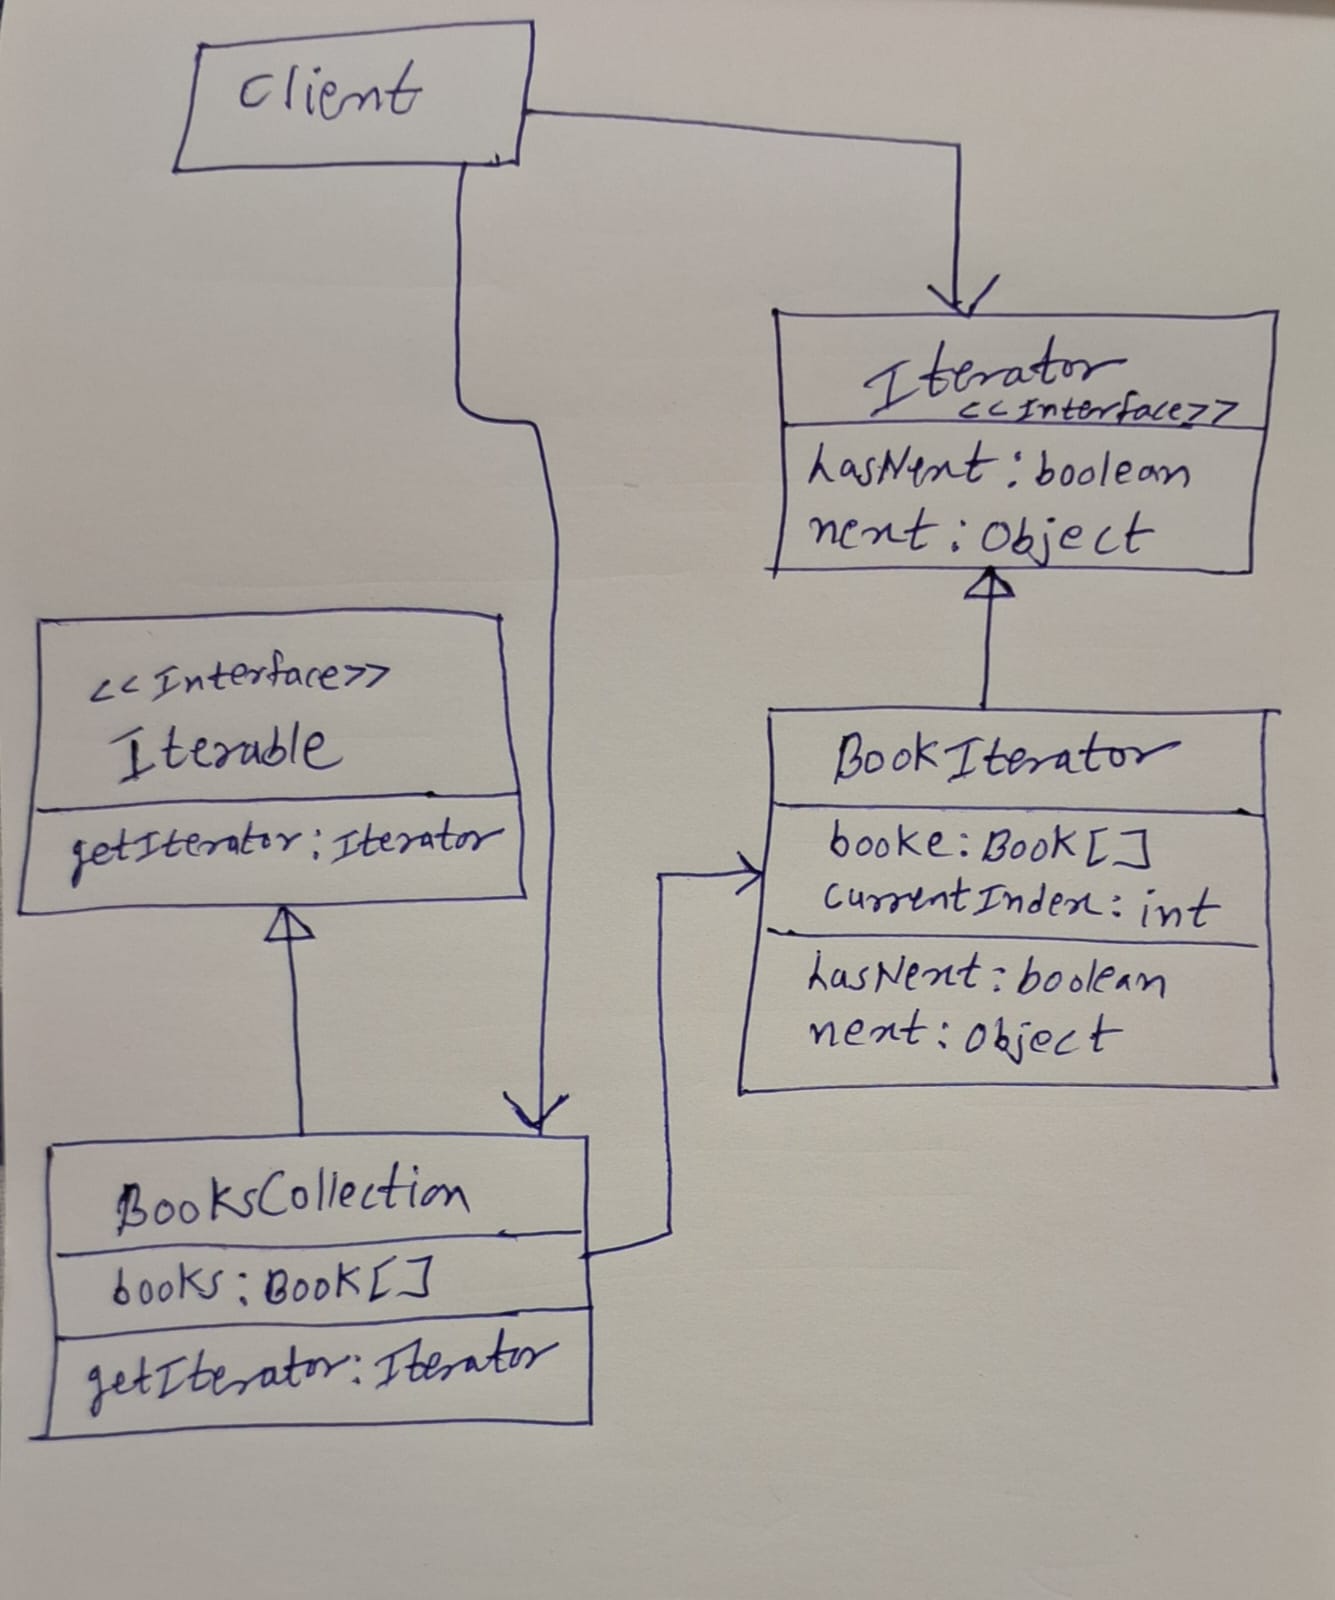 Client
Iterator
<<Interface>>
hasNext : boolean
next : Object
<<Interface>>
Iterable
getIterator : Iterator
BookIterator
booke : Book[]
currentIndex : int
hasNext : boolean
next : Object
BooksCollection
books : Book[]
getIterator : Iterator